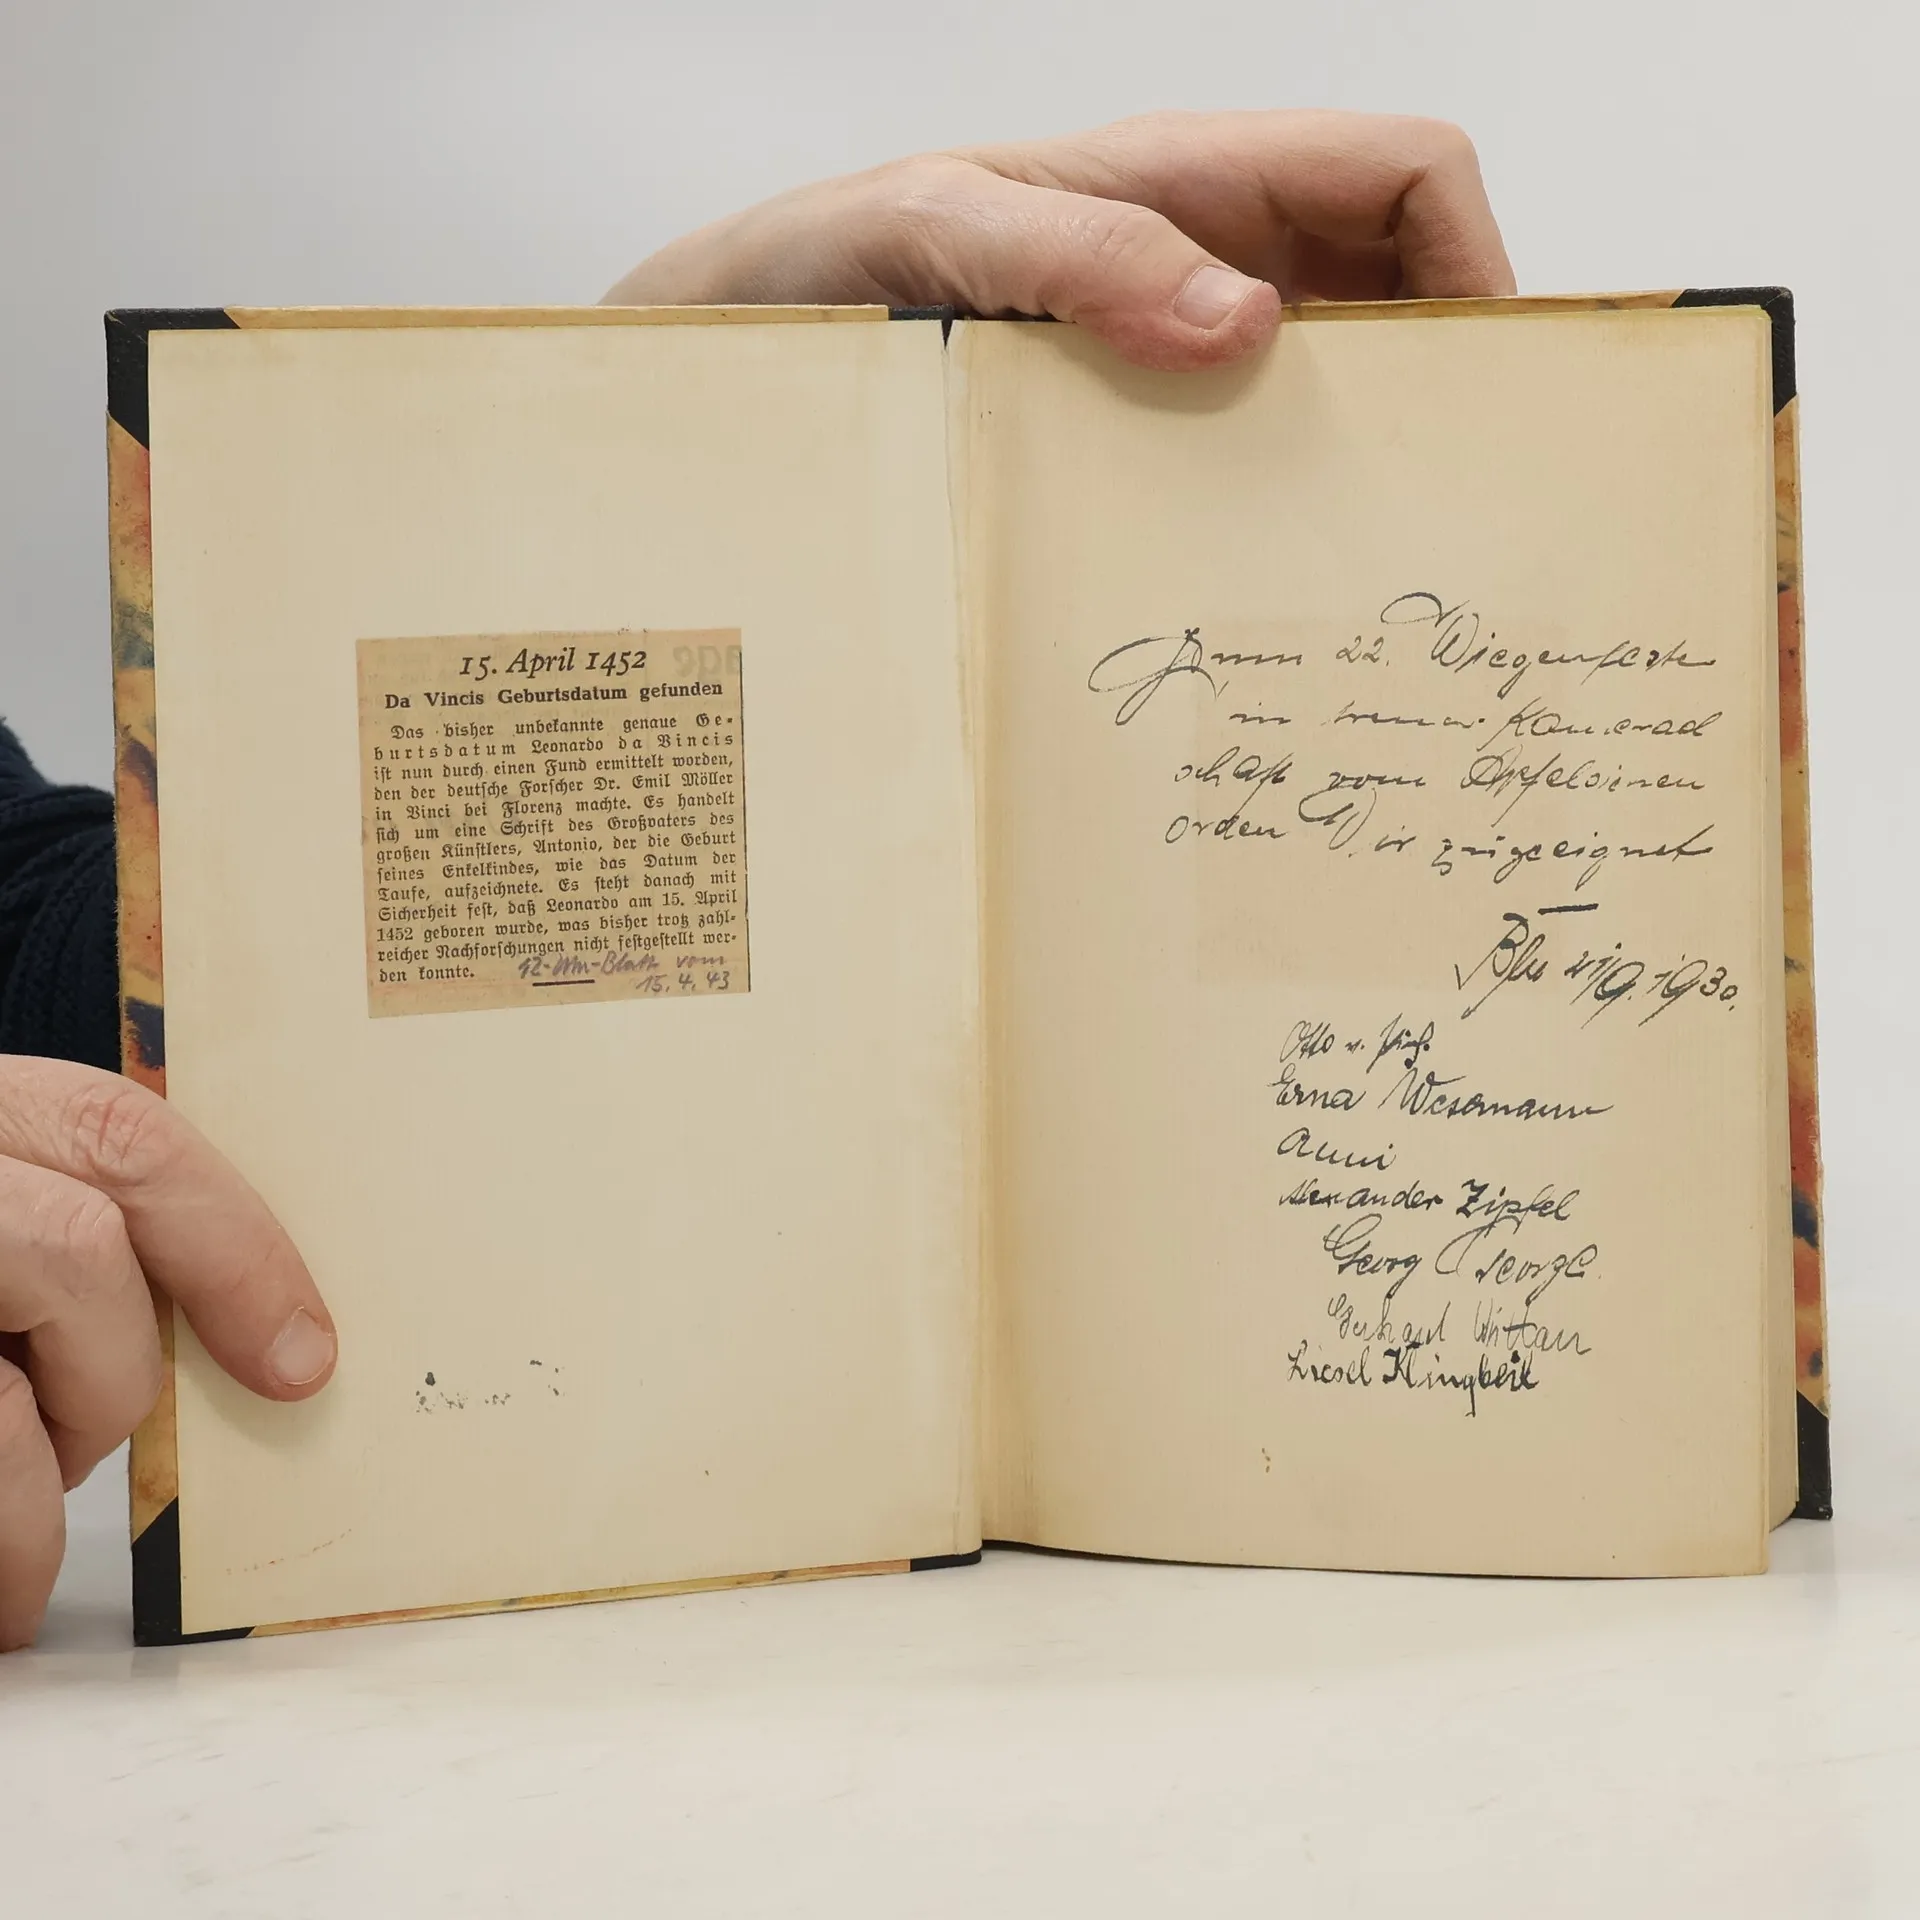 15. April 1452
Da Vincis Geburtsdatum gefunden
Das bisher unbekannte genaue Ge-
burtsdatum Leonardo da Vincis
ist nun durch einen Fund ermittelt worden,
den der deutsche Forscher Dr. Emil Möller
in Vinci bei Florenz machte. Es handelt
sich um eine Schrift des Großvaters des
großen Künstlers, Antonio, der die Geburt
seines Enkelkindes, wie das Datum der
Taufe, aufzeichnete. Es steht danach mit
Sicherheit fest, daß Leonardo am 15. April
1452 geboren wurde, was bisher trotz zahl-
reicher Nachforschungen nicht festgestellt wer-
den konnte.
12-Uhr-Blatt vom
15.4.43
Zum 22. Wiegenfeste
in treuer Kamerad
schaft vom Apfelsinen
orden Dir zugeeignet
Bln 21/9.1930.
Otto v.
Erna Wesemann
Anni
Alexander Zipfel
Georg George
Gerhard Wittau
Liesel Klingbeil